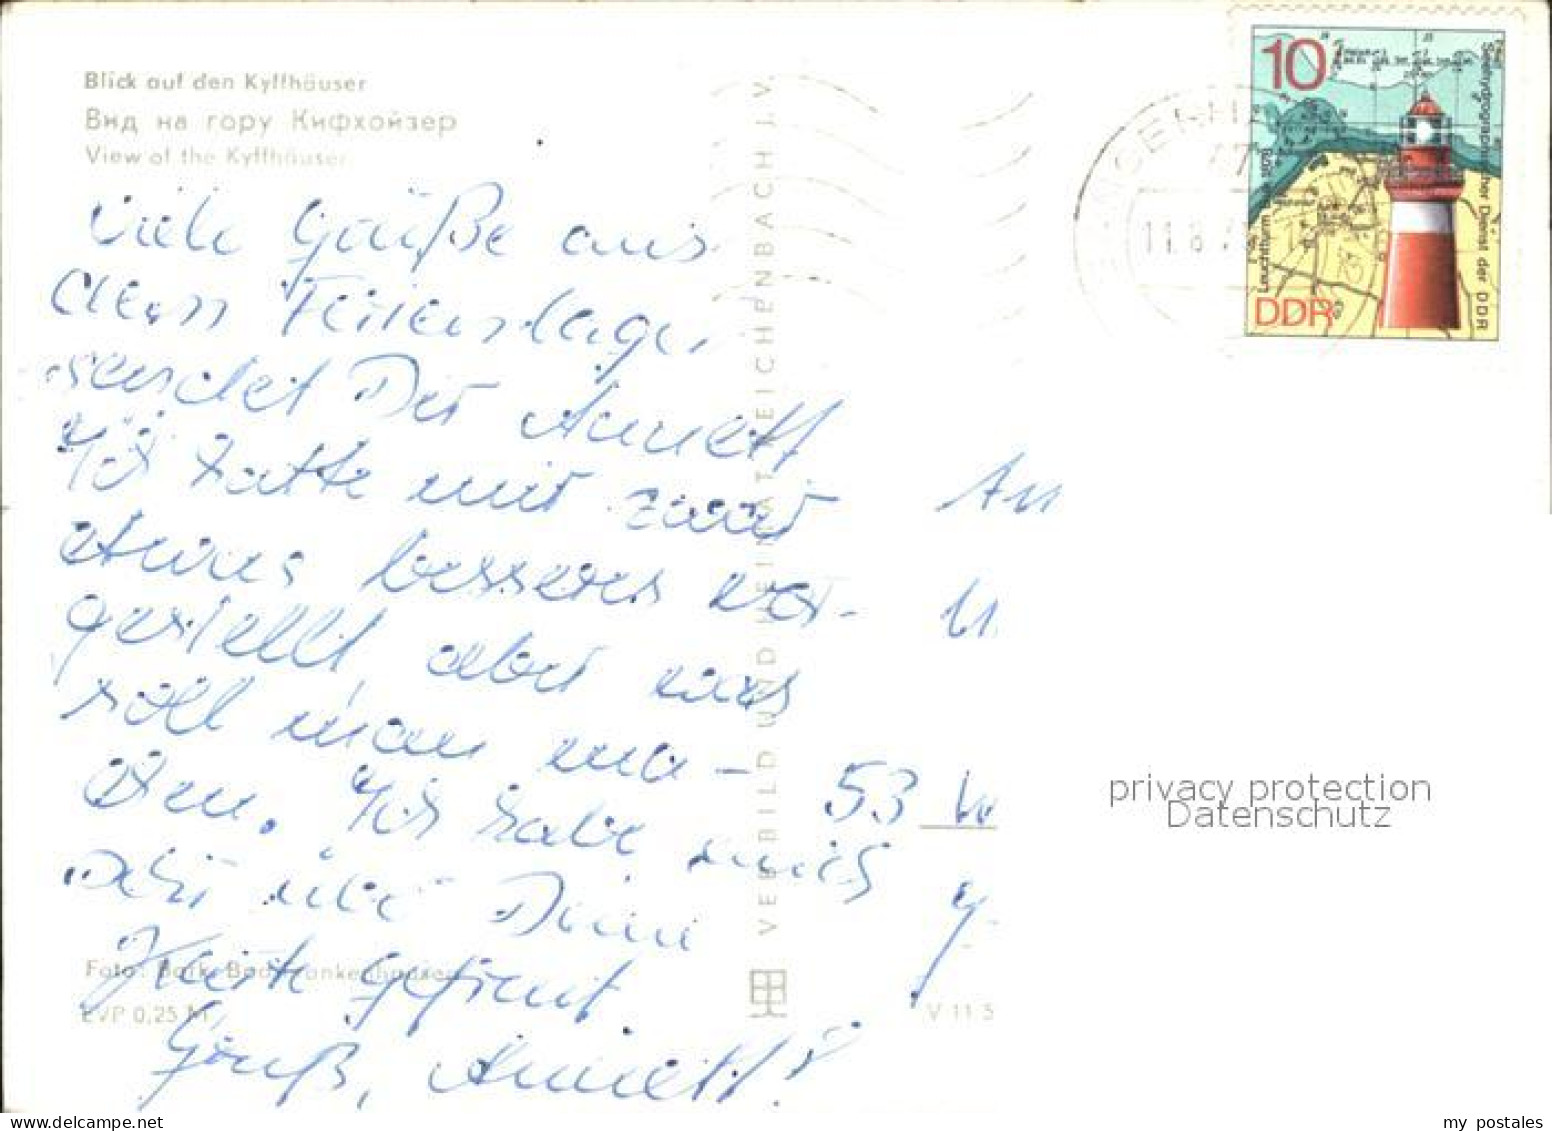 Blick auf den Kyffhäuser
Вид на гору Кифхойзер
View of the Kyffhäuser
Viele Grüße aus
dem Ferienlager
sendet Dir Annett
Ich hatte mir zwar
etwas besseres vor-
gestellt, aber was
soll man ma-
chen. Ich habe mich
sehr über Deine
Karte gefreut
Gruß, Annett!
Foto: Bad Frankenhausen
EVP 0,25 M
VERBILD UND HEIMAT REICHENBACH I. V.
V 11 5
10
Leuchtturm
Seehydrographischer Dienst der DDR
DDR
11.8.7
An
53 W
privacy protection
Datenschutz
my postales